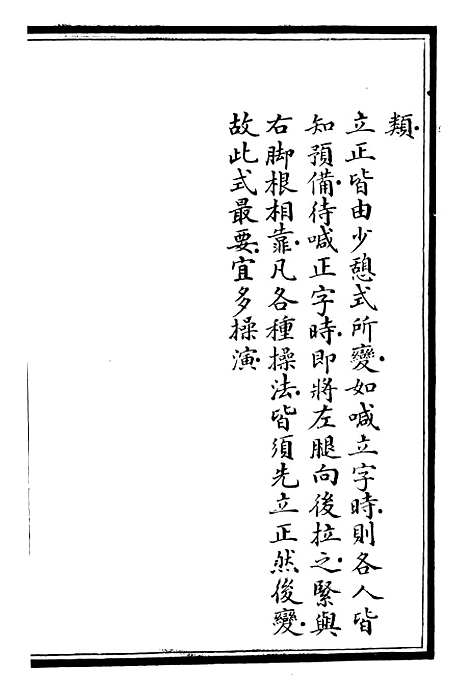 類.
立正皆由少憩式所變.如喊立字時.則各人皆
知預備.待喊正字時.即將左腿向後拉之.緊與
右脚根相靠.凡各種操法.皆須先立正然後變.
故此式最要.宜多操演.